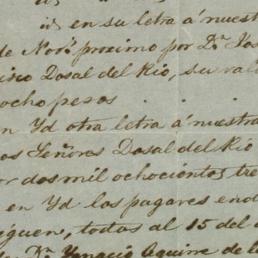 id, en su letra á nuestr
de Novº proximo por Dn Jos
isco Dosal del Rio, su val
ocho pesos . .
n Yd otra letra á nuestra
os Señores Dosal del Rio
or dos mil ochocientos, tre
en Yd los pagares end
guen, todas al 15 del
Dn Ygnacio Aguirre de l